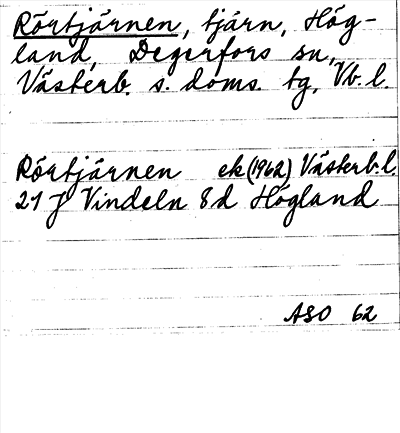 Rörtjärnen, tjärn, Hög-
land, Degerfors sn,
Västerb. s. doms. tg, Vb. l.
Rörtjärnen ek (1962) Västerb. l
21 J Vindeln 8d Högland
ASO 62